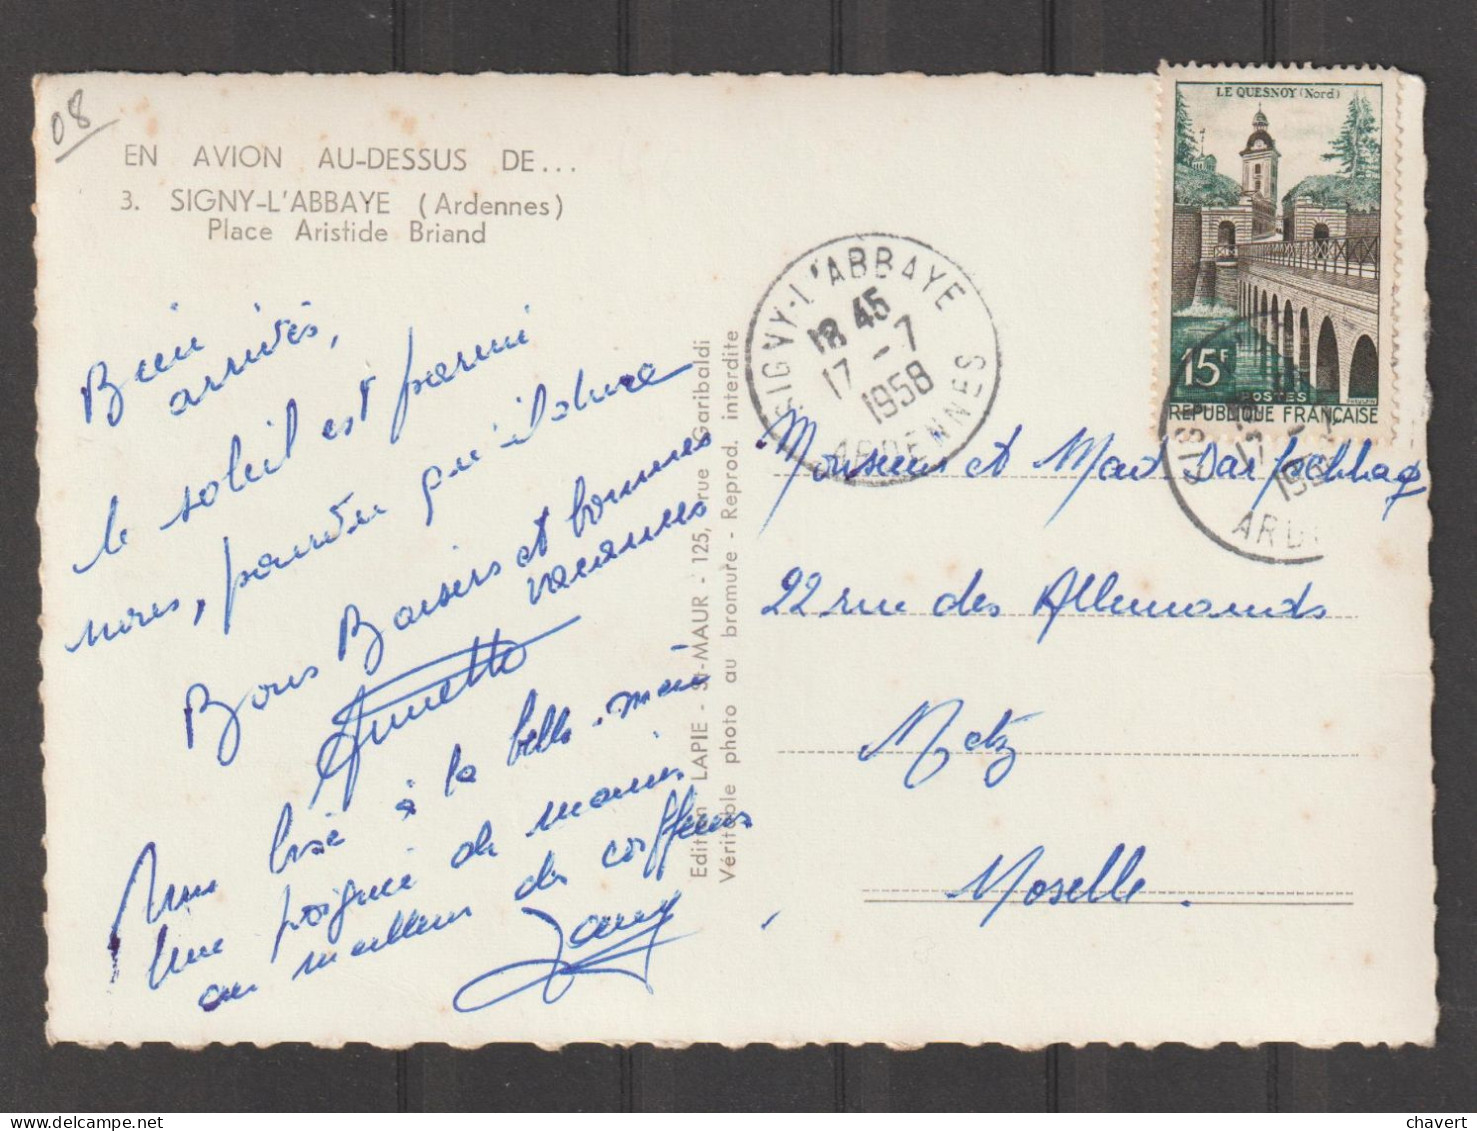 08
EN AVION AU-DESSUS DE...
3. SIGNY-L'ABBAYE (Ardennes)
Place Aristide Briand
Bien
arrivés,
le soleil est parmi
nous, pourvu qu'il dure
Bons Baisers et bonnes
vacances
Annette
Une bise à la belle-mère
Une poignée de mains
au meilleur des coiffeurs
Edition LAPIE - St-MAUR - 125, rue Garibaldi
Véritable photo au bromure - Reprod. interdite
SIGNY-L'ABBAYE
18 45
17 - 7
1958
ARDENNES
LE QUESNOY (Nord)
15F
POSTES
REPUBLIQUE FRANÇAISE
Monsieur et
22 rue des Allemands
Metz
Moselle.
chavert